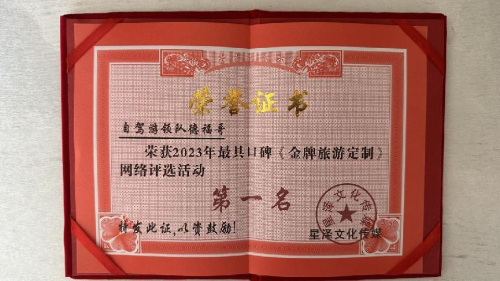 荣誉证书
自驾游领队德福哥
荣获2023年最具口碑《金牌旅游定制》
网络评选活动
第一名
特发此证,以资鼓励!
星泽文化传媒
星泽文化传媒